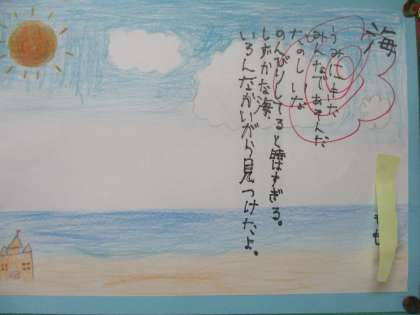 海
うみにきた
みんなであそんだ
たのしいな
のんびりしてると すぎる。
しずかな海、
いろんなかいがら見つけたよ。